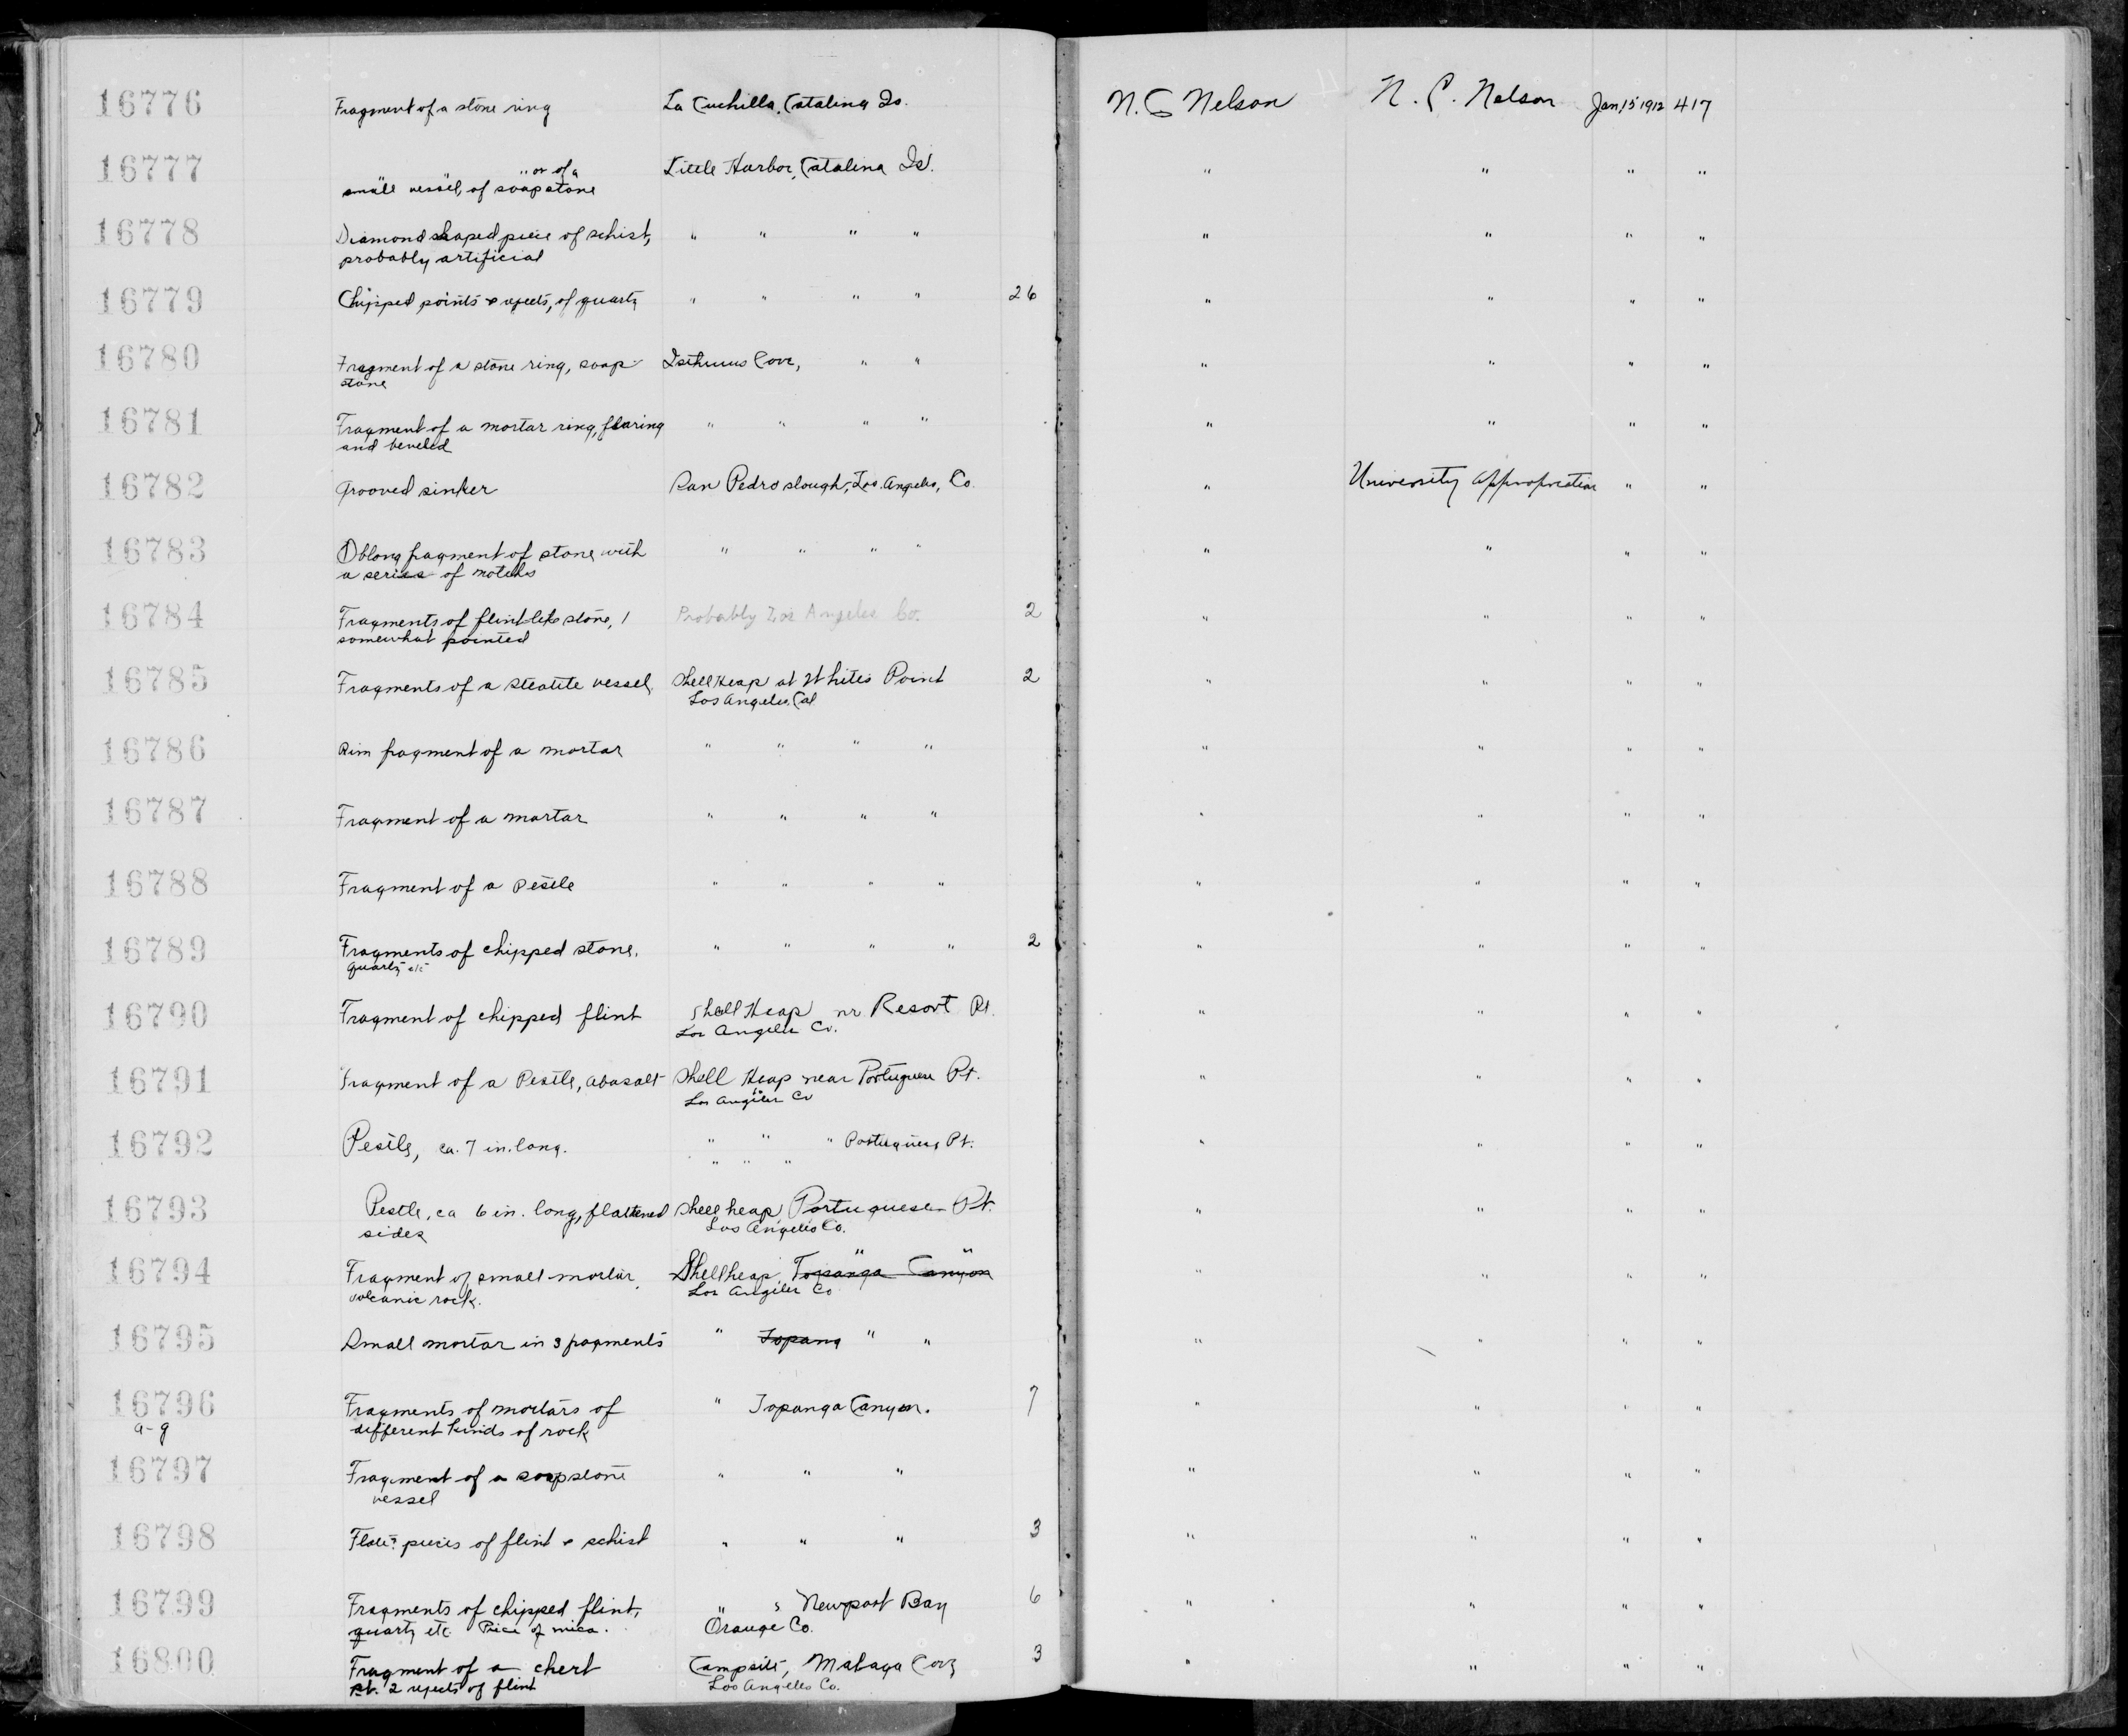 16776 Fragment of a stone ring La Cuchilla, Catalina Is. N. C Nelson N. C. Nelson Jan 15 1912 417
16777 " or of a Little Harbor, Catalina Is. " " " "
small vessel, of soapstone
16778 Diamond shaped piece of schist, " " " " " " " "
probably artificial
16779 Chipped points & rejects, of quartz " " " " 26 " " " "
16780 Fragment of a stone ring, soap- Isthmus Cove, " " " " " "
stone
16781 Fragment of a mortar ring, flaring " " " " " " " "
and beveled
16782 Grooved sinker San Pedro slough, Los Angeles, Co. " University Appropriation " "
16783 Oblong fragment of stone with " " " " " " " "
a series of notches
16784 Fragments of flint-like stone, 1 Probably Los Angeles Co. 2 " " " "
somewhat pointed
16785 Fragments of a steatite vessel Shell Heap at Whites Point 2 " " " "
Los Angeles, Cal
16786 Rim fragment of a mortar " " " " " " " "
16787 Fragment of a mortar " " " " " " " "
16788 Fragment of a Pestle " " " " " " " "
16789 Fragments of chipped stone, " " " " 2 " " " "
quartz etc
16790 Fragment of chipped flint Shell Heap nr Resort Pt. " " " "
Los Angeles Co.
16791 Fragment of a Pestle, a basalt Shell Heap near Portuguese Pt. " " " "
Los Angeles Co
16792 Pestle, ca. 7 in. long. " " " Portuguese Pt. " " " "
" " "
16793 Pestle, ca 6 in. long, flattened Shell heap Portuguese Pt. " " " "
sides Los Angeles Co.
16794 Fragment of small mortar, Shell heap, Topanga Canyon " " " "
volcanic rock. Los Angeles Co
16795 Small mortar in 3 fragments " Topang " " " " " "
16796 Fragments of mortars of " Topanga Canyon. 7 " " " "
a-g different kinds of rock
16797 Fragment of a soapstone " " " " " " "
vessel
16798 Flat? pieces of flint & schist " " " 3 " " " "
16799 Fragments of chipped flint, " , Newport Bay 6 " " " "
quartz etc. Piece of mica. Orange Co.
16800 Fragment of a chert Campsite, Malaga Cove 3 " " " "
pt. 2 rejects of flint Los Angeles Co.